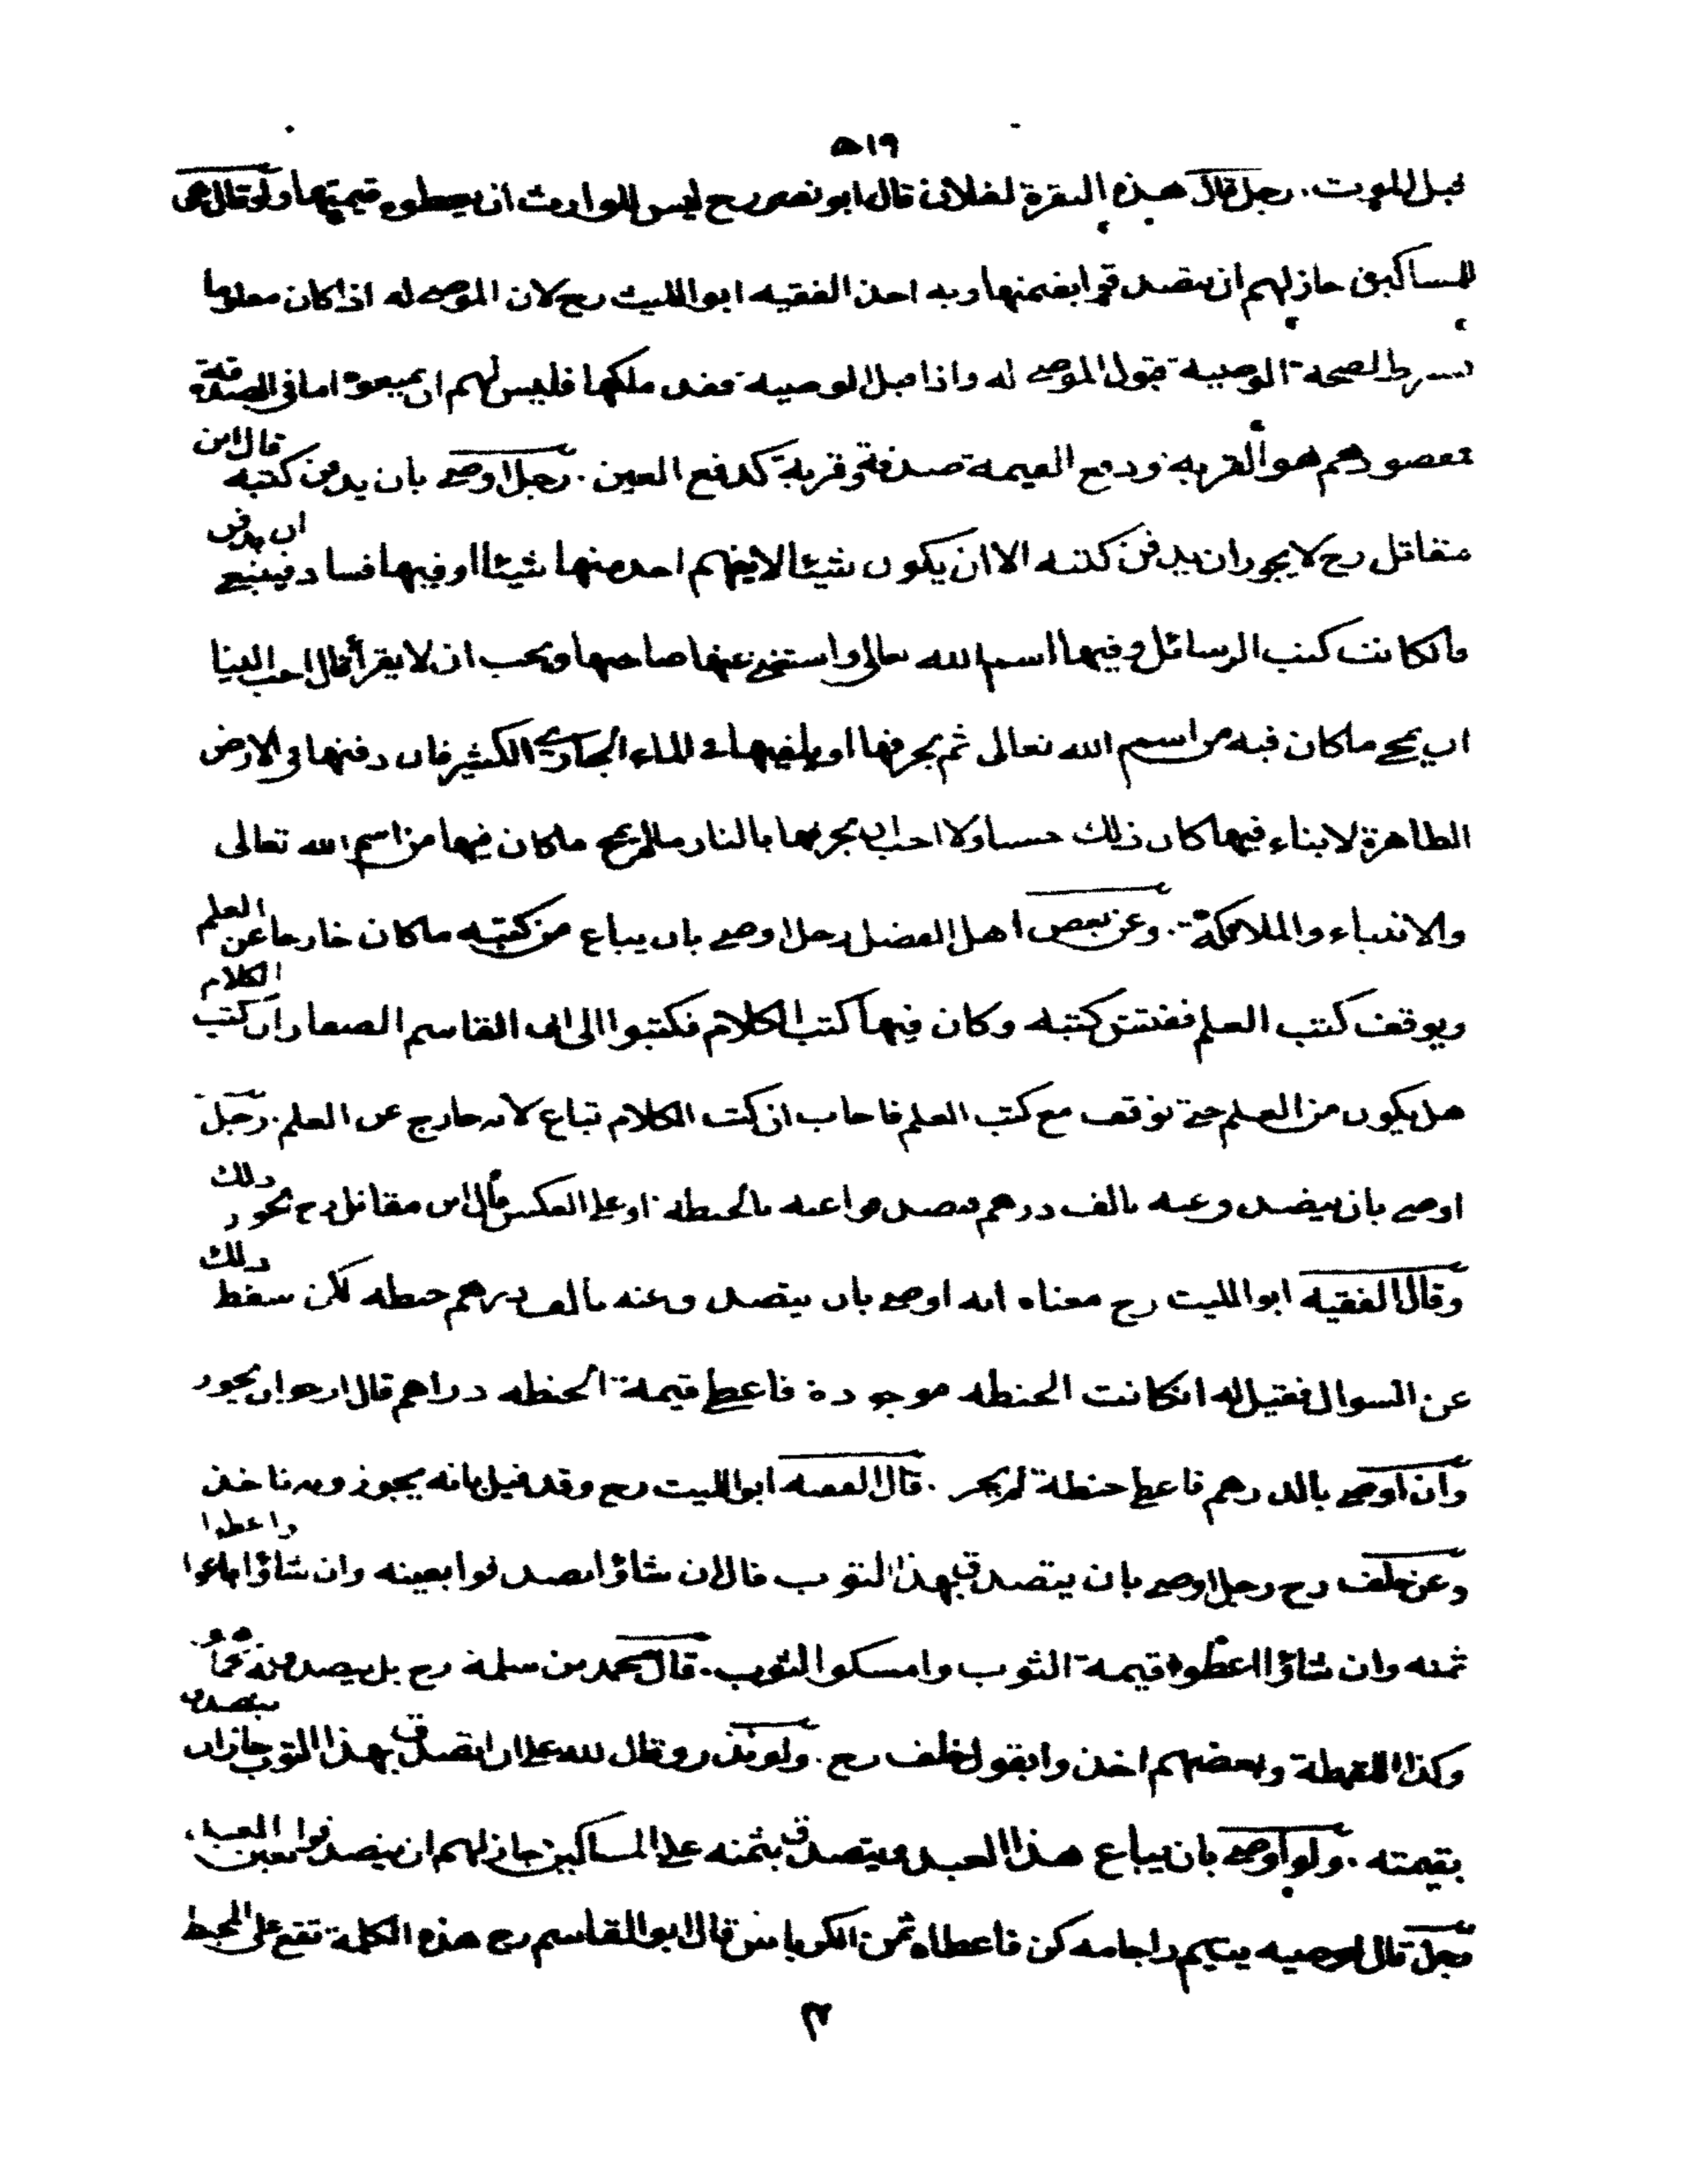 ٥١٩
قبل الموت . رجل قال هذه البقرة لفلان قال ابو نصر رح ليس للوارث ان يعطوه قيمتها ولو قال هى
للمساكين جاز لهم ان يتصدقوا بثمنها وبه اخذ الفقيه ابو الليث رح لان الموصى له اذا كان معلوما
يشترط لصحة الوصية قبول الموصى له واذا قبل الوصية فقد ملكها فليس لهم ان يبيعوه اما فى الصدقة
مقصودهم هو القربة ودفع القيمة صدقة وقربة كدفع العين . رجل اوصى بان يدفن كتبه قال ابن
مقاتل رح لا يجوز ان يدفن كتبه الا ان يكون شيئا لا يفهم احد منها شيئا او فيها فساد فينبغى ان يدفن
وان كانت كتب الرسائل وفيها اسم الله تعالى واستغنى عنها صاحبها ويحب ان لا يقرأ قال احب الينا
ان يمحى ما كان فيه من اسم الله تعالى ثم يحرقها او يلقيها فى الماء الجارى الكثير فان دفنها فى الارض
الطاهرة لا بناء فيها كان ذلك حسنا ولا احب ان يحرقها بالنار ما لم يمح ما كان فيها من اسم الله تعالى
والانبياء والملائكة . وعن بعض اهل الفضل رجل اوصى بان يباع من كتبه ما كان خارجا عن العلم
ويوقف كتب العلم ففتش كتبه وكان فيها كتب الكلام فكتبوا الى ابى القاسم الصفار ان كتب الكلام
هل يكون من العلم حتى توقف مع كتب العلم فاجاب ان كتب الكلام تباع لانه خارج عن العلم . رجل
اوصى بان يتصدق عنه بالف درهم فتصدقوا عنه بالحنطة او على العكس قال ابن مقاتل رح يجوز ذلك
وقال الفقيه ابو الليث رح معناه انه اوصى بان يتصدق عنه بالف درهم حنطه لكن سقط ذلك
عن السوال فقيل له ان كانت الحنطه موجودة فاعطى قيمة الحنطه دراهم قال ارجو ان يجوز
وان اوصى بالدرهم فاعطى حنطة لم يجز . قال الفقيه ابو الليث رح وقد قيل بانه يجوز وبه ناخذ
وعن خلف رح رجل اوصى بان يتصدق بهذا الثوب قال ان شاؤا تصدقوا بعينه وان شاؤا باعوا واعطوا
ثمنه وان شاؤا اعطوا قيمة الثوب وامسكوا الثوب . قال محمد بن سلمة رح بل يتصدق به كما هو
وكذا اللقطة وبعضهم اخذوا بقول خلف رح . ولو نذر وقال لله على ان اتصدق بهذا الثوب جاز ان يتصدق
بقيمته . ولو اوصى بان يباع هذا العبد ويتصدق بثمنه على المساكين جاز لهم ان يتصدقوا بعين العبد
رجل قال لوصيه يتيم را جامه كن فاعطاه ثمن الكرباس قال ابو القاسم رح هذه الكلمة تقع على المخيط
م